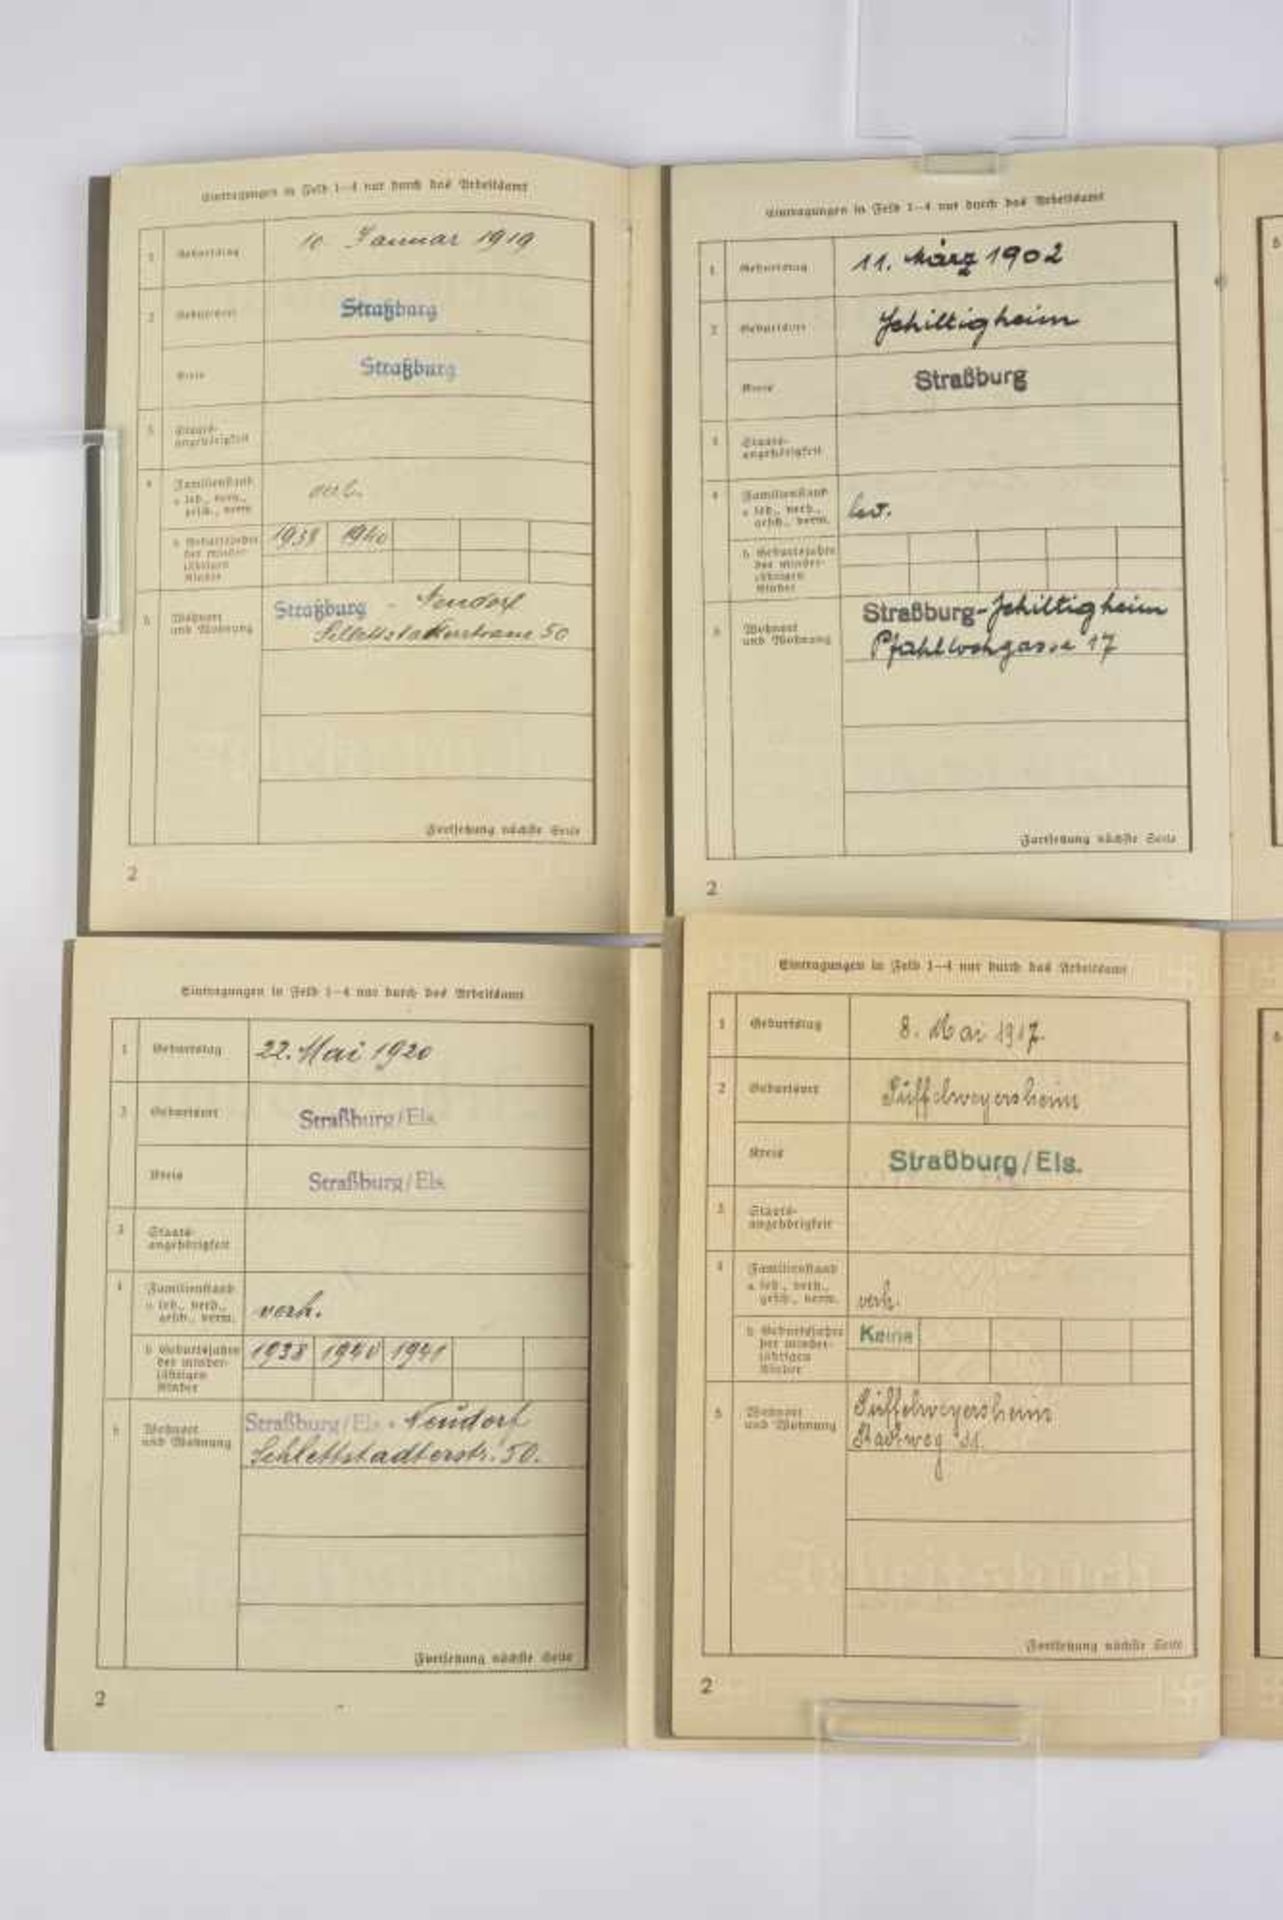 Eintragungen in Feld 1–4 nur durch das Arbeitsamt
1 Geburtstag 10. Januar 1919
2 Geburtsort Straßburg
Kreis Straßburg
3 Staats-
angehörigkeit
4 Familienstand
a led., verh.,
gesch., verw. verh.
b Geburtsjahre 1938 1940
der minder-
jährigen
Kinder
5 Wohnort Straßburg - Neudorf
und Wohnung Schlettstadterstrasse 50
Fortsetzung nächste Seite
2
Eintragungen in Feld 1–4 nur durch das Arbeitsamt
1 Geburtstag 11. März 1902
2 Geburtsort Schiltigheim
Kreis Straßburg
3 Staats-
angehörigkeit
4 Familienstand
a led., verh.,
gesch., verw.
b Geburtsjahre
der minder-
jährigen
Kinder
5 Wohnort Straßburg-Schiltigheim
und Wohnung 17
Fortsetzung nächste Seite
2
Eintragungen in Feld 1–4 nur durch das Arbeitsamt
1 Geburtstag 22. Mai 1920
2 Geburtsort Straßburg/Els.
Kreis Straßburg/Els.
3 Staats-
angehörigkeit
4 Familienstand
a led., verh.,
gesch., verw. verh.
b Geburtsjahre 1938 1940 1941
der minder-
jährigen
Kinder
5 Wohnort Straßburg/Els. - Neudorf
und Wohnung Schlettstadterstr. 50.
Fortsetzung nächste Seite
2
Eintragungen in Feld 1–4 nur durch das Arbeitsamt
1 Geburtstag 8. Mai 1917.
2 Geburtsort Süffelweyersheim
Kreis Straßburg/Els.
3 Staats-
angehörigkeit
4 Familienstand
a led., verh.,
gesch., verw. verh.
b Geburtsjahre Keine
der minder-
jährigen
Kinder
5 Wohnort Süffelweyersheim
und Wohnung
Fortsetzung nächste Seite
2